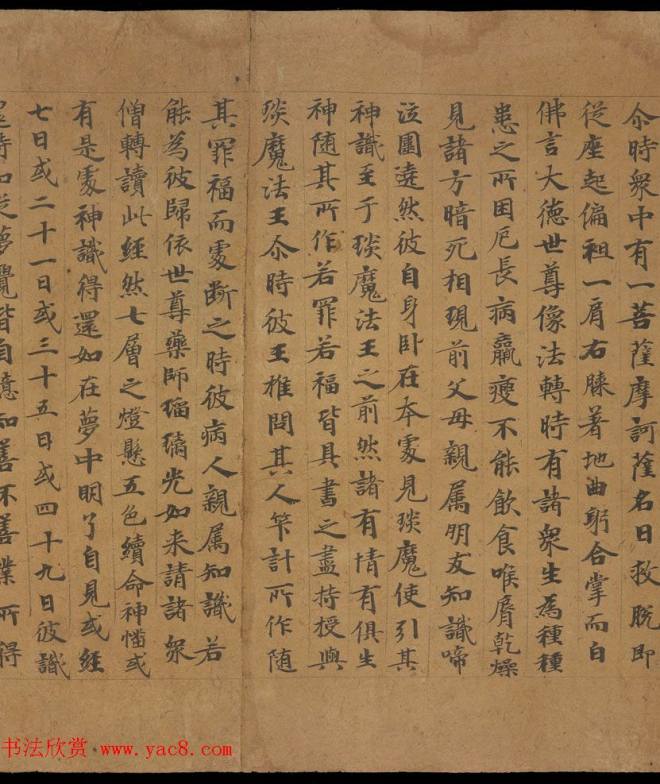 尒時衆中有一菩薩摩訶薩名曰救脱即
從座起偏袒一肩右膝著地曲躬合掌而白
佛言大德世尊像法轉時有諸衆生為種種
患之所困厄長病羸瘦不能飲食喉脣乾燥
見諸方暗死相現前父母親属朋友知識啼
泣圍遶然彼自身卧在本處見琰魔使引其
神識至于琰魔法王之前然諸有情有俱生
神随其所作若罪若福皆具書之盡持授與
琰魔法王尒時彼王推問其人筭計所作随
其罪福而處断之時彼病人親属知識若
能為彼歸依世尊藥師瑠璃光如来請諸衆
僧轉讀此經然七層之燈懸五色續命神幡或
有是處神識得還如在夢中明了自見或經
七日或二十一日或三十五日或四十九日彼識
還時如從夢覺皆自憶知善不善業所得
书法欣赏 www.yac8.com